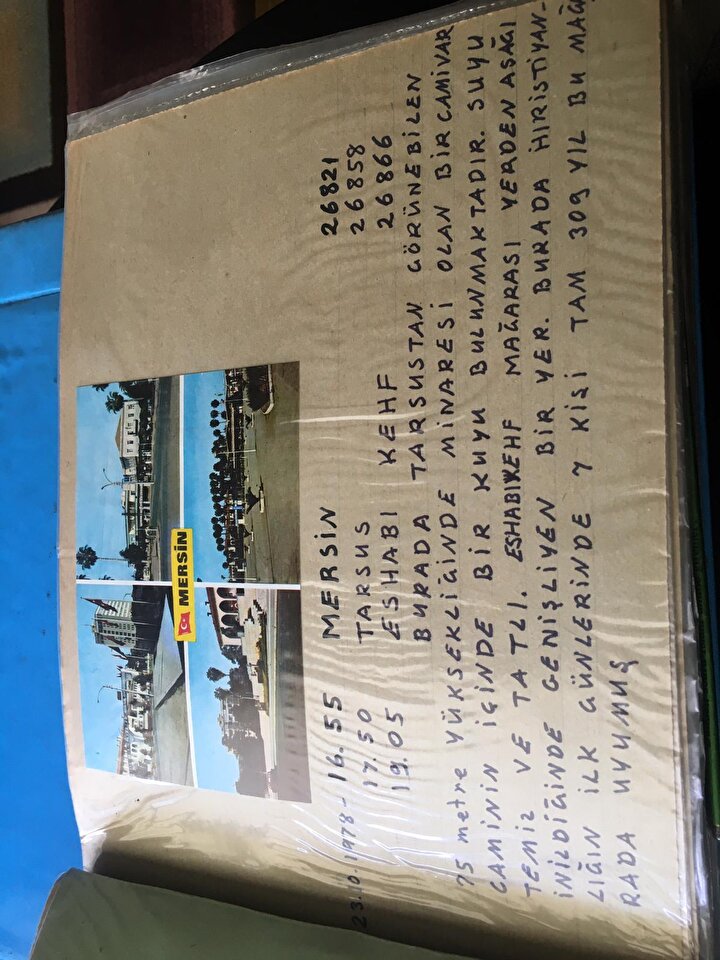 MERSİN
23.10.1978 - 16.55 MERSİN 26821
17.50 TARSUS 26858
19.05 ESHABI KEHF 26866
BURADA TARSUSTAN GÖRÜNEBİLEN
75 metre YÜKSEKLİĞİNDE MİNARESİ OLAN BİR CAMİVAR
CAMİNİN İÇİNDE BİR KUYU BULUNMAKTADIR. SUYU
TEMİZ VE TATLI. ESHABIKEHF MAĞARASI YERDEN AŞAĞI
İNİLDİĞİNDE GENİŞLİYEN BİR YER. BURADA HIRISTİYAN-
LIĞIN İLK GÜNLERİNDE 7 KİŞİ TAM 309 YIL BU MAĞA
RADA UYUMUŞ